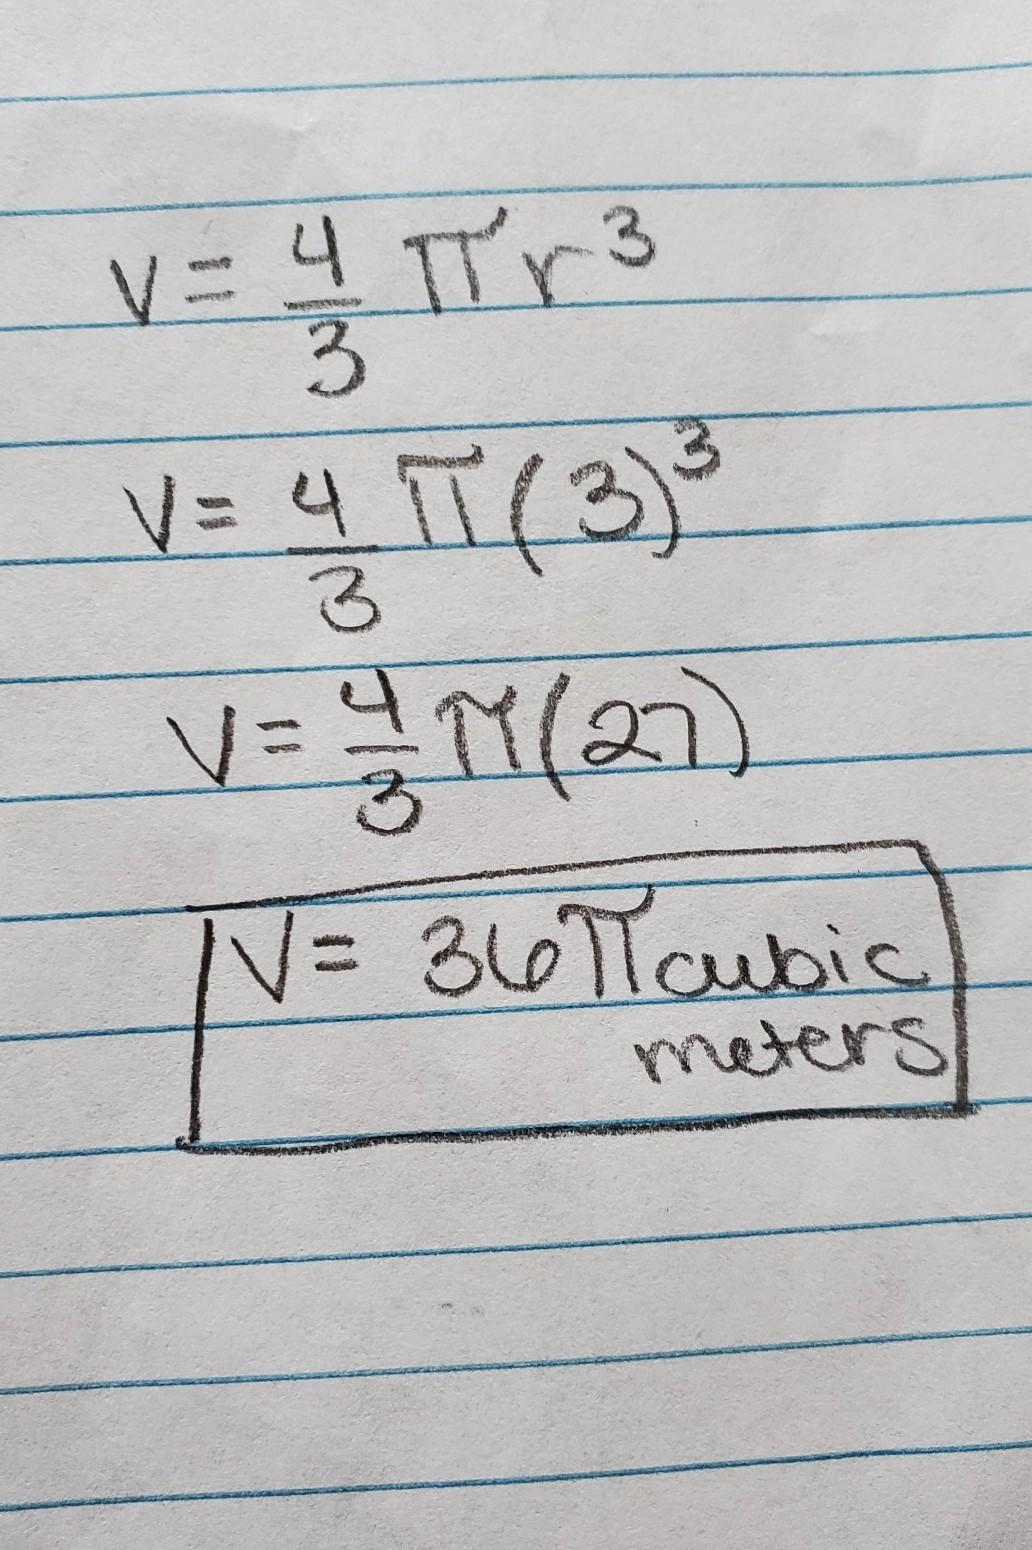 V = 4/3 π r³
V = 4/3 π (3)³
V = 4/3 π (27)
V = 36 π cubic
meters